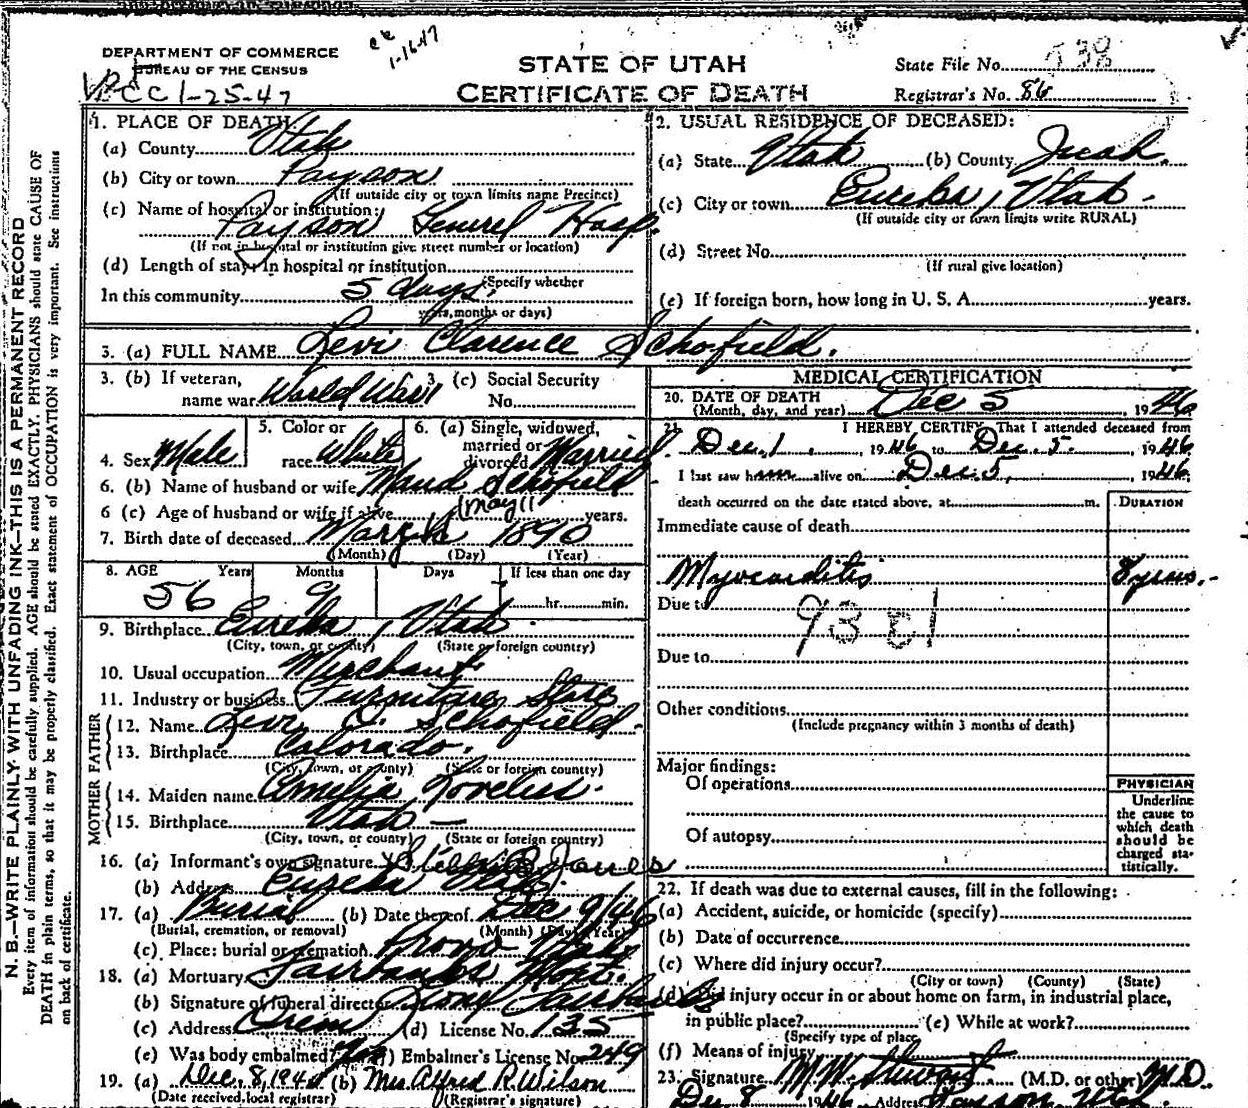 DEPARTMENT OF COMMERCE
BUREAU OF THE CENSUS
1-16-47
CC 1-25-47
STATE OF UTAH
CERTIFICATE OF DEATH
State File No.
Registrar's No. 86
N. B.—WRITE PLAINLY WITH UNFADING INK—THIS IS A PERMANENT RECORD
Every item of information should be carefully supplied. AGE should be stated EXACTLY. PHYSICIANS should state CAUSE OF
DEATH in plain terms, so that it may be properly classified. Exact statement of OCCUPATION is very important. See instructions
on back of certificate.
1. PLACE OF DEATH
(a) County Utah
(b) City or town Payson
(If outside city or town limits name Precinct)
(c) Name of hospital or institution:
Payson General Hosp.
(If not in hospital or institution give street number or location)
(d) Length of stay: In hospital or institution
(Specify whether
In this community 5 days
years, months or days)
2. USUAL RESIDENCE OF DECEASED:
(a) State Utah (b) County Juab.
(c) City or town Eureka, Utah.
(If outside city or town limits write RURAL)
(d) Street No.
(If rural give location)
(e) If foreign born, how long in U. S. A. years.
3. (a) FULL NAME Levi Clarence Schofield.
3. (b) If veteran,
name war World War 1
3 (c) Social Security
No.
4. Sex Male
5. Color or
race White
6. (a) Single, widowed,
married or
divorced Married.
6. (b) Name of husband or wife Maud Schofield
6 (c) Age of husband or wife if alive years.
(May 11
7. Birth date of deceased 1890
(Month) (Day) (Year)
8. AGE Years Months Days If less than one day
56 9 hr. min.
9. Birthplace Eureka, Utah.
(City, town, or county) (State or foreign country)
10. Usual occupation Merchant
11. Industry or business Furniture Store
FATHER
12. Name Levi Schofield.
13. Birthplace Colorado.
(City, town, or county) (State or foreign country)
MOTHER
14. Maiden name Amelia
15. Birthplace Utah —
(City, town, or county) (State or foreign country)
16. (a) Informant's own signature Jones
(b) Address Eureka Utah.
17. (a) Burial (b) Date thereof Dec 9/46
(Burial, cremation, or removal) (Month) (Day) (Year)
(c) Place: burial or cremation Provo Utah
18. (a) Mortuary Fairbanks Mort.
(b) Signature of funeral director Fairbanks
(c) Address Orem (d) License No. 135
(e) Was body embalmed? Yes (f) Embalmer's License No. 249
19. (a) Dec. 8, 1946 (b) Mrs Alfred R. Wilson
(Date received, local registrar) (Registrar's signature)
MEDICAL CERTIFICATION
20. DATE OF DEATH
(Month, day, and year) Dec 5 1946
21. I HEREBY CERTIFY, That I attended deceased from
Dec. 1, 1946 to Dec. 5. 1946.
I last saw him alive on Dec. 5, 1946.
death occurred on the date stated above, at m.
DURATION
Immediate cause of death
Myocarditis 8 years.
Due to
93
Due to
Other conditions
(Include pregnancy within 3 months of death)
Major findings:
Of operations
Of autopsy
PHYSICIAN
Underline
the cause to
which death
should be
charged sta-
tistically.
22. If death was due to external causes, fill in the following:
(a) Accident, suicide, or homicide (specify)
(b) Date of occurrence
(c) Where did injury occur?
(City or town) (County) (State)
(d) Did injury occur in or about home on farm, in industrial place,
in public place? (e) While at work?
(Specify type of place)
(f) Means of injury
23. Signature M. W. Stewart (M.D. or other) M.D.
Dec 8 1946 Address Payson, Utah